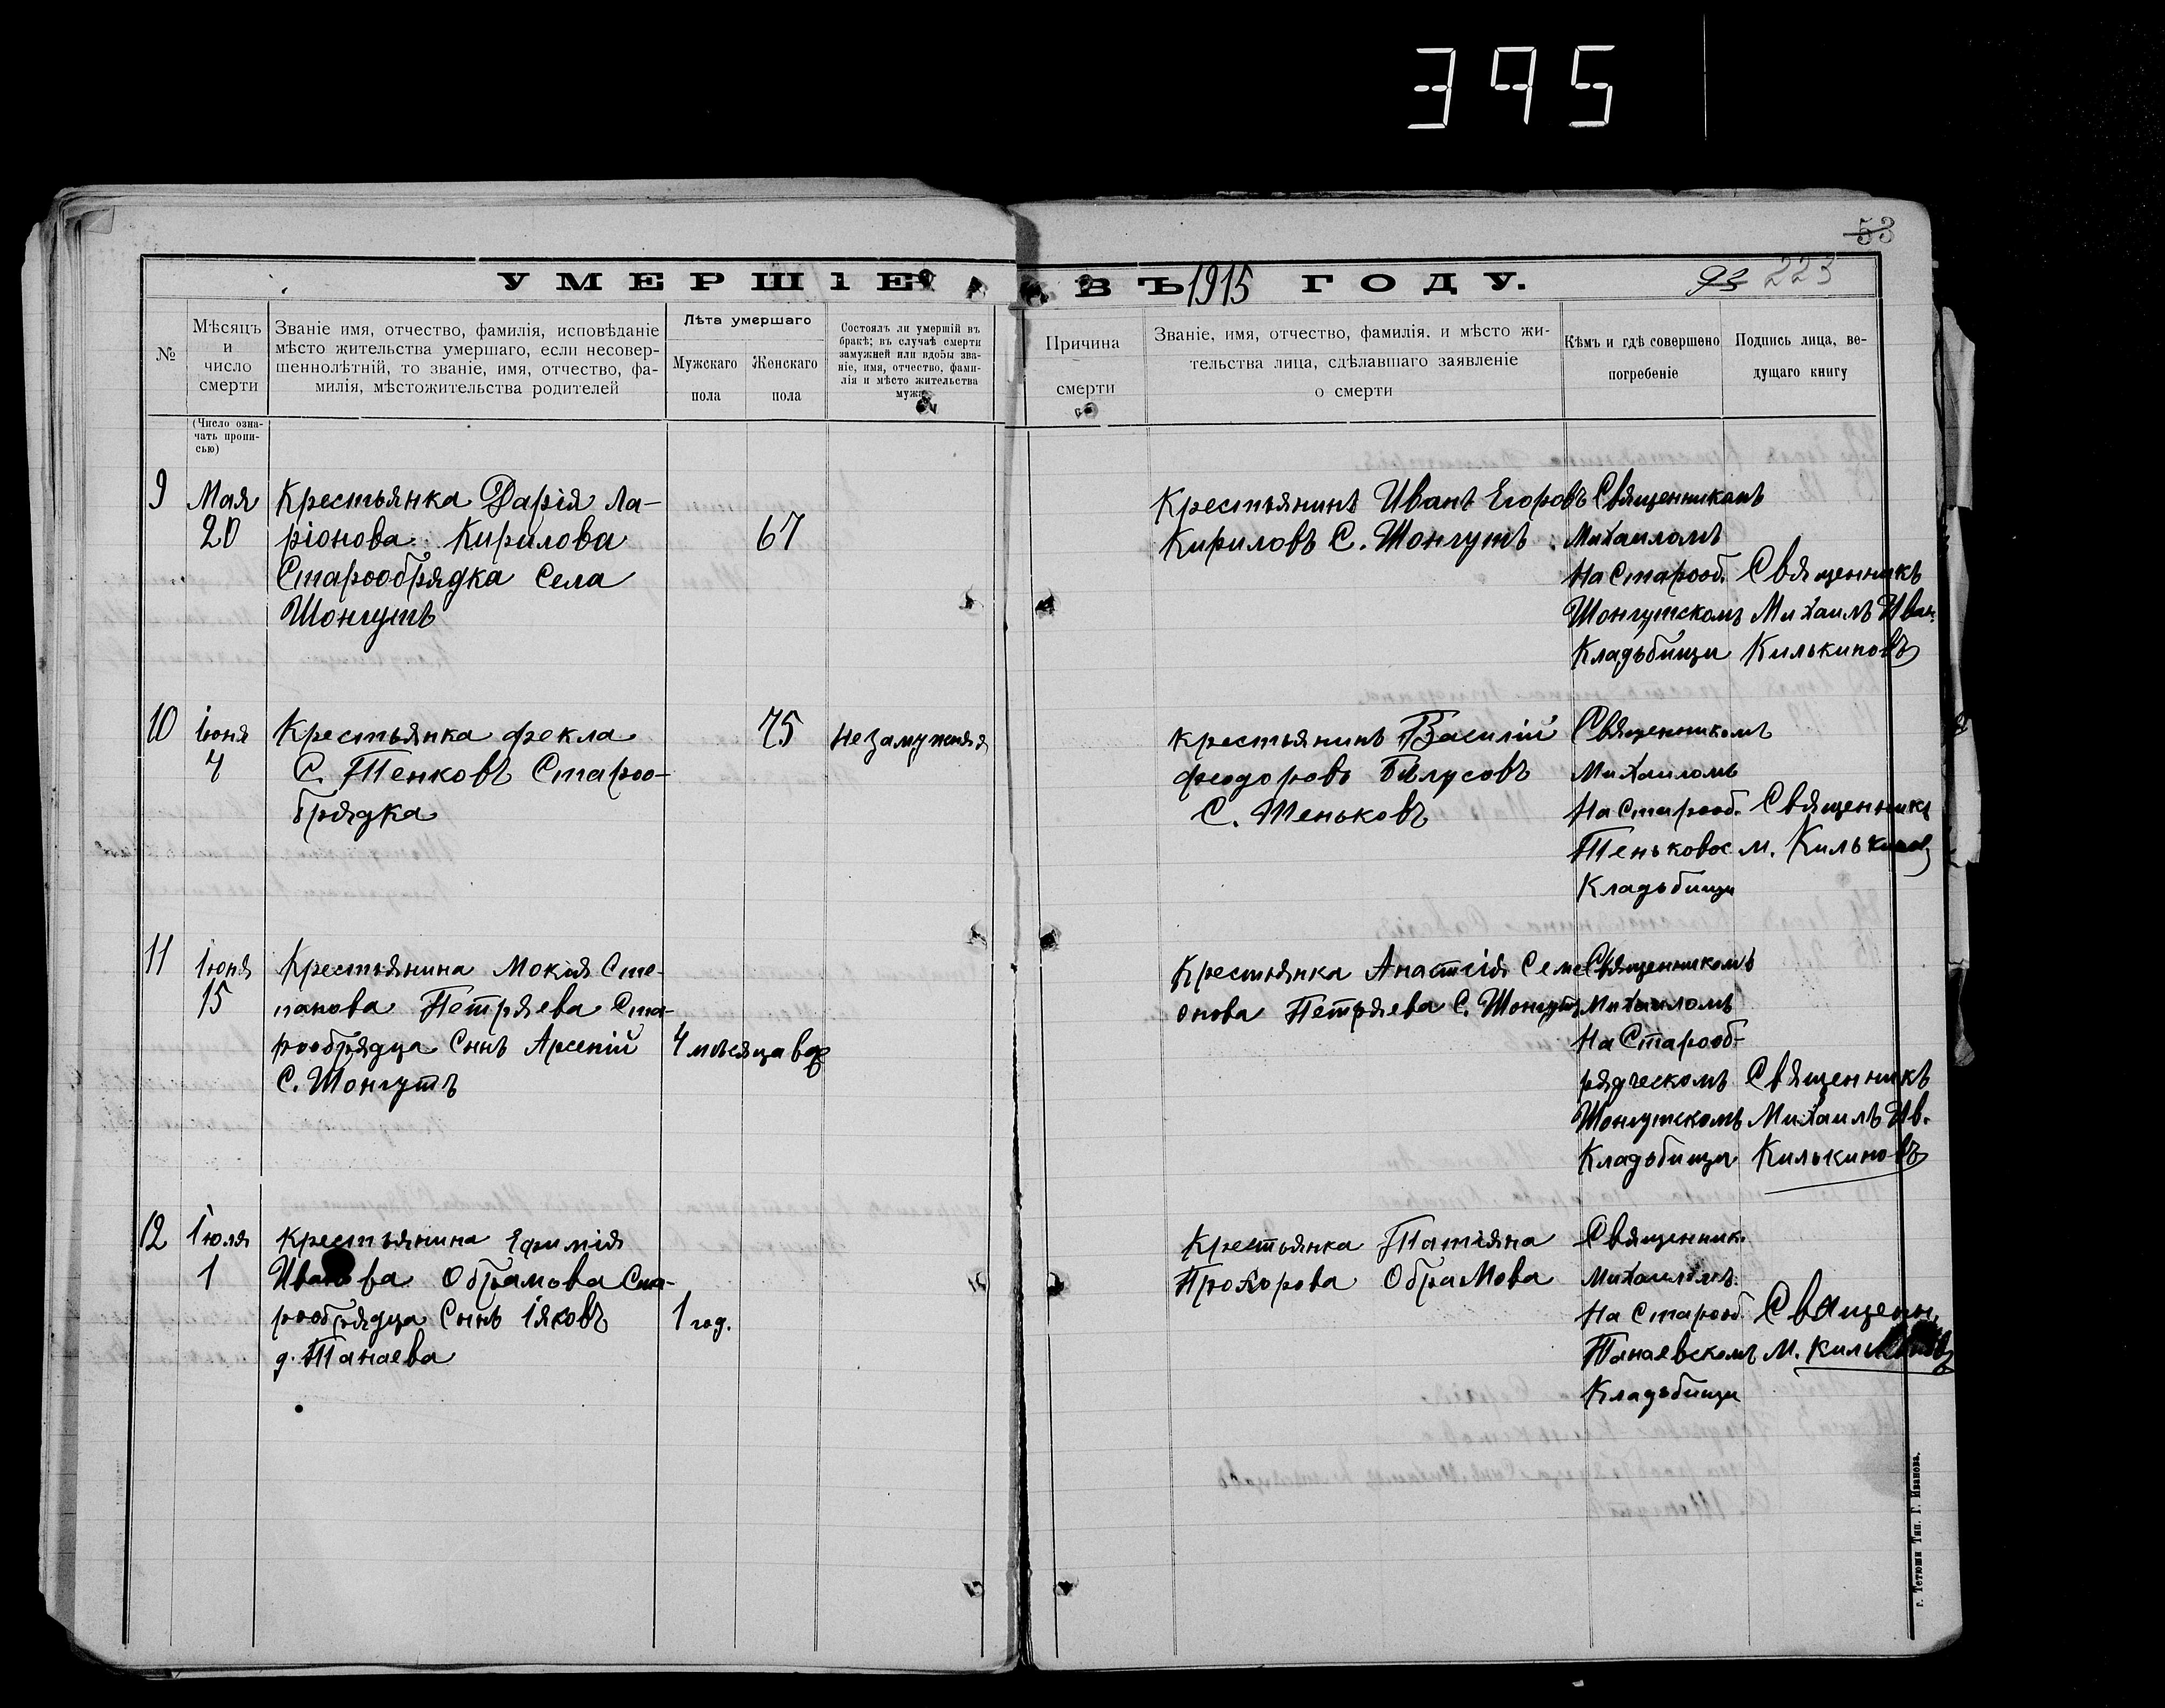 395
53
УМЕРШІЕ ВЪ 1915 ГОДУ.
93 223
№
Мѣсяцъ
и
число
смерти
Званіе имя, отчество, фамилія, исповѣданіе
мѣсто жительства умершаго, если несовер-
шеннолѣтній, то званіе, имя, отчество, фа-
милія, мѣстожительства родителей
Лѣта умершаго
Мужскаго
пола
Женскаго
пола
Состоялъ ли умершій въ
бракѣ; въ случаѣ смерти
замужней или вдовы зва-
ніе, имя, отчество, фами-
лія и мѣсто жительства
мужа
Причина
смерти
Званіе, имя, отчество, фамилія. и мѣсто жи-
тельства лица, сдѣлавшаго заявленіе
о смерти
Кѣмъ и гдѣ совершено
погребеніе
Подпись лица, ве-
дущаго книгу
(Число озна-
чать пропи-
сью)
9
Мая
20
Крестьянка Дарія Ла-
ріонова Кирилова
Старообрядка Села
Шонгутъ
67
Крестьянинъ Иванъ Егоровъ
Кириловъ С. Шонгутъ
Священникомъ
Михаиломъ
На Старооб.
Шонгутскомъ
Кладъбищи
Священникъ
Михаилъ Иван.
Килькиновъ
10
Іюня
4
Крестьянка Фекла
С. Тенковъ Староо-
брядка
75
Незамужняя
Крестьянинъ Василій
Феодоровъ Бѣлусовъ
С. Теньковъ
Священникомъ
Михаиломъ
На Старооб.
Теньковос
Кладъбищи
Священникъ
М. Килькиновъ
11
Іюня
15
Крестьянина Мокія Сте-
панова Петряева Ста-
рообрядца Сынъ Арсеній
С. Шонгутъ
4 мѣсяца
Крестьянка Анатсія Семе
онова Петряева С. Шонгутъ
Священникомъ
Михаиломъ
На Старооб-
рядческомъ
Шонгутскомъ
Кладъбищи
Священникъ
Михаилъ Ив.
Килькиновъ
12
Іюля
1
Крестьянина Ефимія
Иванова Обрамова Ста-
рообрядца Сынъ Іяковъ
д. Танаева
1 год.
Крестьянка Татіяна
Прохорова Обрамова
Священник.
Михаиломъ
На Старооб.
Танаевскомъ
Кладъбищи
Священн.
М. Килькиновъ
г. Тетюши Тип. Г. Иванова.